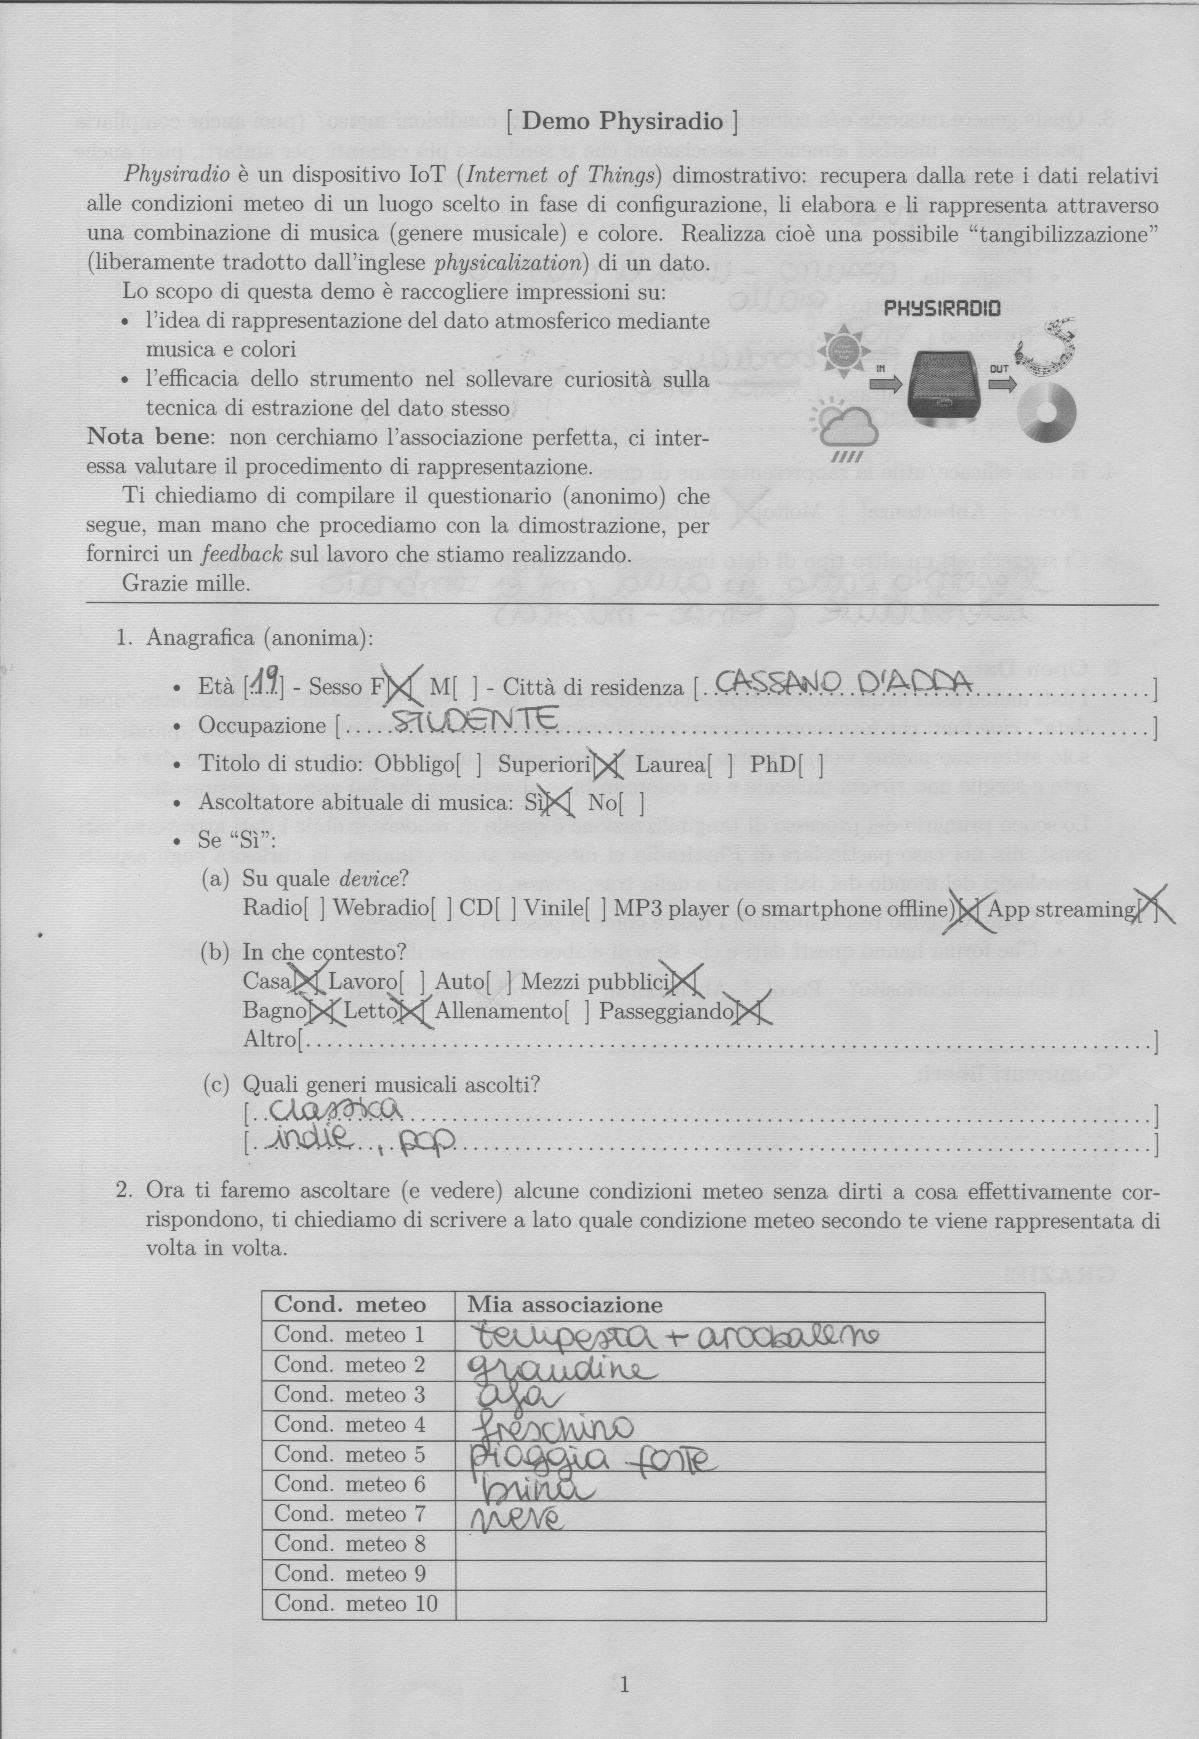 [ Demo Physiradio ]
Physiradio è un dispositivo IoT (Internet of Things) dimostrativo: recupera dalla rete i dati relativi
alle condizioni meteo di un luogo scelto in fase di configurazione, li elabora e li rappresenta attraverso
una combinazione di musica (genere musicale) e colore. Realizza cioè una possibile “tangibilizzazione”
(liberamente tradotto dall'inglese physicalization) di un dato.
Lo scopo di questa demo è raccogliere impressioni su:
• l'idea di rappresentazione del dato atmosferico mediante
musica e colori
• l'efficacia dello strumento nel sollevare curiosità sulla
tecnica di estrazione del dato stesso
Nota bene: non cerchiamo l'associazione perfetta, ci inter-
essa valutare il procedimento di rappresentazione.
Ti chiediamo di compilare il questionario (anonimo) che
segue, man mano che procediamo con la dimostrazione, per
fornirci un feedback sul lavoro che stiamo realizzando.
Grazie mille.
PHYSIRADIO
IN
OUT
1. Anagrafica (anonima):
• Età [19] - Sesso F[X] M[ ] - Città di residenza [CASSANO D'ADDA]
• Occupazione [STUDENTE]
• Titolo di studio: Obbligo[ ] Superiori[X] Laurea[ ] PhD[ ]
• Ascoltatore abituale di musica: Sì[X] No[ ]
• Se “Sì”:
(a) Su quale device?
Radio[ ] Webradio[ ] CD[ ] Vinile[ ] MP3 player (o smartphone offline)[X] App streaming[X]
(b) In che contesto?
Casa[X] Lavoro[ ] Auto[ ] Mezzi pubblici[X]
Bagno[X] Letto[X] Allenamento[ ] Passeggiando[X]
Altro[ ]
(c) Quali generi musicali ascolti?
[classica]
[indie, pop]
2. Ora ti faremo ascoltare (e vedere) alcune condizioni meteo senza dirti a cosa effettivamente cor-
rispondono, ti chiediamo di scrivere a lato quale condizione meteo secondo te viene rappresentata di
volta in volta.
Cond. meteo Mia associazione
Cond. meteo 1 tempesta + arcobaleno
Cond. meteo 2 grandine
Cond. meteo 3 afa
Cond. meteo 4 freschino
Cond. meteo 5 pioggia forte
Cond. meteo 6 brina
Cond. meteo 7 neve
Cond. meteo 8
Cond. meteo 9
Cond. meteo 10
1